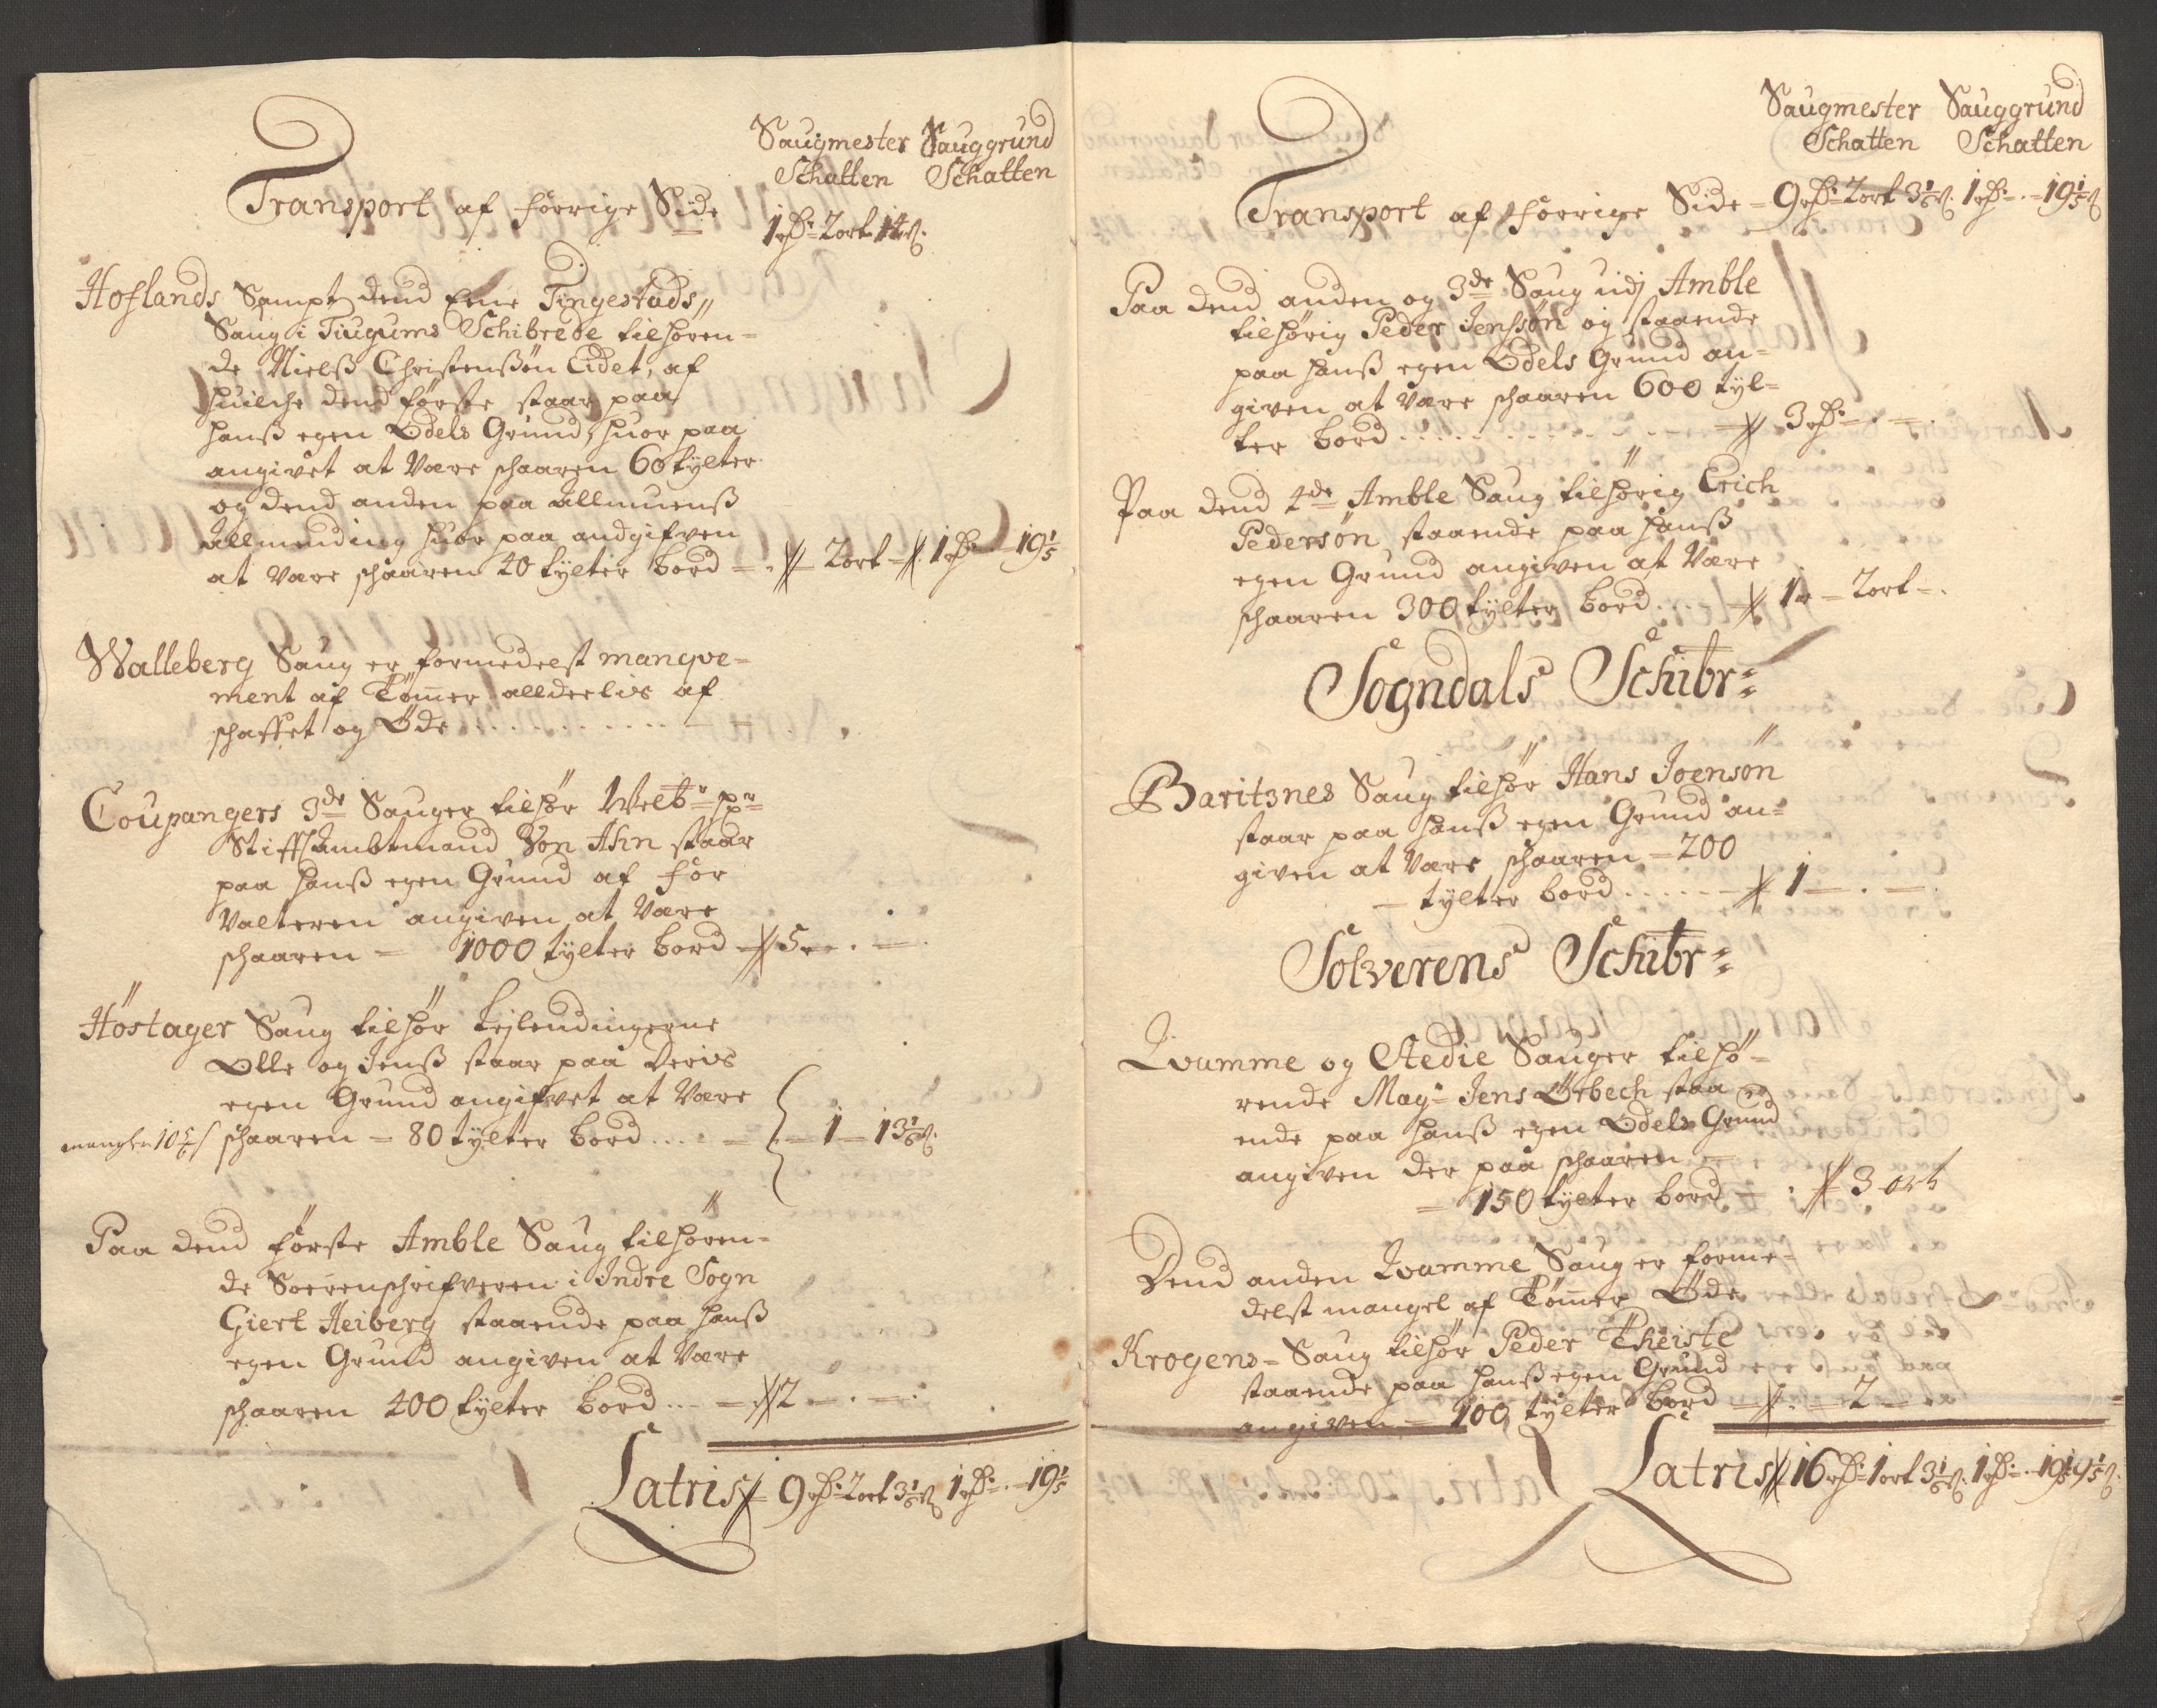 Saugmester Sauggrund
Schatten Schatten
Transport af forrige Side 1 rdr 2 ort 14 s.
Hoflands Sampt dend Eene Tingestads
Saug i Tiugums Schibrede tilhøren=
de Nielß Christenßøn Eidet, af
huilche dend første staar paa
hanß egen Odels Grund, huor paa
angivet at Være schaaren 60 tylter
og dend anden paa Allmuenß
Allmending huor paa andgifven
at Være schaaren 40 tylter bord = 2 ort = 1 rdr - 19 1/5
Walleberg Saug er formedelst manqve=
ment af Tømer alldeelis af
schaffet og Øde
Coupangers 3de Sauger tilhør Welb: Hr:
Stiftambtmand Von Ahn staar
paa hanß egen Grund af for
Valteren angiven at Være
schaaren = 1000 tylter bord 5 - . -
Høstager Saug tilhør Lejlendingerne
Olle og Jenß staar paa deris
egen Grund angifvet at Være
schaaren = 80 tylter bord .... = 1 - 13 1/6 s.
Paa dend første Amble Saug tilhøren=
de Soerenschrifveren i Indre Sogn
Giert Heiberg staaende paa hanß
egen Grund angiven at Være
schaaren 400 tylter bord ... 2 - . -
Latris 9 rdr 2 ort 3 1/6 s 1 rdr - 19 1/5
Saugmester Sauggrund
Schatten Schatten
Transport af forrige Side = 9 rdr 2 ort 3 1/6 s. 1 rdr - 19 1/5 s
Paa dend anden og 3de Saug udj Amble
tilhørig Peder Jenßøn og staaende
paa hanß egen Odels Grund an=
given at Være schaaren 600 tyl=
ter bord 3 rdr - . -
Paa dend 4de Amble Saug tilhørig Erich
Pedersøn staaende paa hanß
egen Grund angiven at Være
schaaren 300 tylter bord 1 - 2 ort -.
Sogndals Schibr:
Baritznes Saug tilhør Hans Joensøn
staar paa hanß egen Grund an=
given at Være schaaren = 200
= tylter bord 1 - . -
Solverens Schibr:
Qvamme og Stedie Sauger tilhø=
rende Mag: Jens Ørbech staa
ende paa hanß egen Odels Grund
angiven der paa schaaren =
= 150 tylter bord = 3 ort
Dend anden Qvamme Saug er forme=
delst mangel af Tømer Øde
Krogens = Saug tilhør Peder Theiste
staaende paa hanß egen Grund
angiven = 100 tylter bord - 2 -
Latris 16 rdr 1 ort 3 1/6 s. 1 rdr - 19 1/5 s.